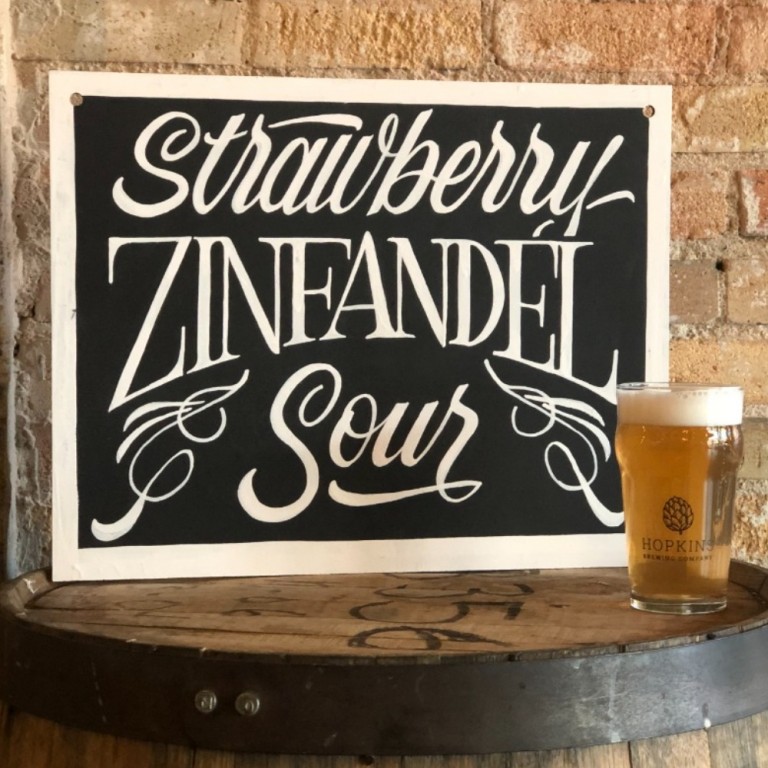 Strawberry
ZINFANDÉL
Sour
HOPKINS
BREWING COMPANY